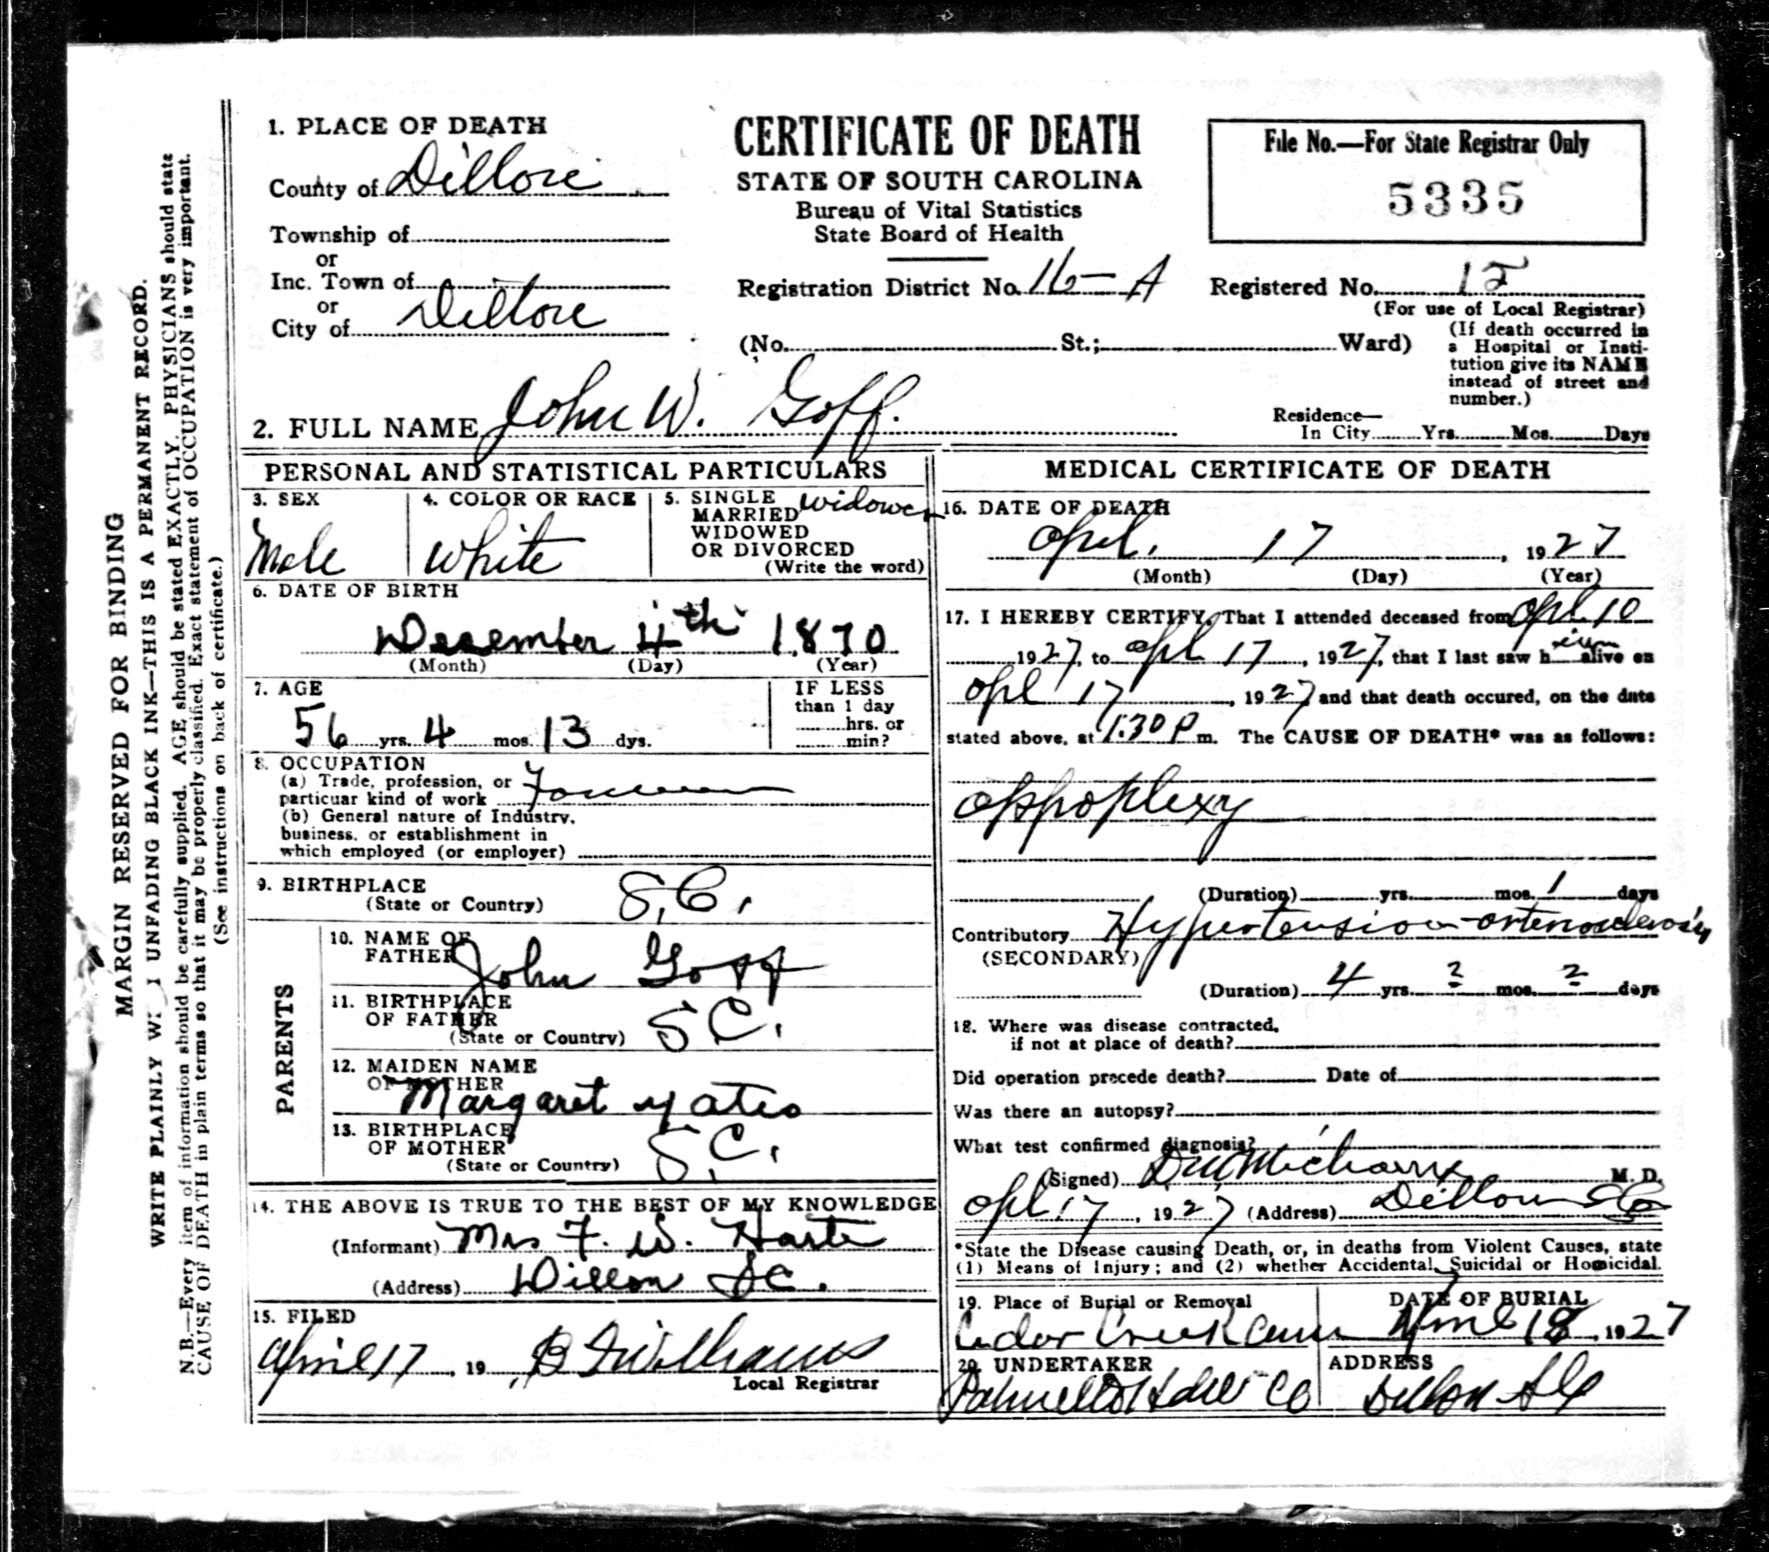 MARGIN RESERVED FOR BINDING
WRITE PLAINLY WI I UNFADING BLACK INK—THIS IS A PERMANENT RECORD.
N.B.—Every item of information should be carefully supplied. AGE should be stated EXACTLY. PHYSICIANS should state
CAUSE OF DEATH in plain terms so that it may be properly classified. Exact statement of OCCUPATION is very important.
(See instructions on back of certificate.)
CERTIFICATE OF DEATH
STATE OF SOUTH CAROLINA
Bureau of Vital Statistics
State Board of Health
File No.—For State Registrar Only
5335
1. PLACE OF DEATH
County of Dillon
Township of
or
Inc. Town of
or
City of Dillon
Registration District No. 16-A
Registered No.
(For use of Local Registrar)
(No. St.; Ward)
(If death occurred in
a Hospital or Insti-
tution give its NAME
instead of street and
number.)
2. FULL NAME John W. Goff.
Residence—
In City Yrs. Mos. Days
PERSONAL AND STATISTICAL PARTICULARS
3. SEX
Male
4. COLOR OR RACE
White
5. SINGLE
MARRIED
WIDOWED
OR DIVORCED
(Write the word)
widower
6. DATE OF BIRTH
December 4th 1870
(Month) (Day) (Year)
7. AGE
56 yrs. 4 mos. 13 dys.
IF LESS
than 1 day
hrs. or
min?
8. OCCUPATION
(a) Trade, profession, or
particuar kind of work
(b) General nature of Industry,
business, or establishment in
which employed (or employer)
9. BIRTHPLACE
(State or Country) S.C.
PARENTS
10. NAME OF
FATHER John Goff
11. BIRTHPLACE
OF FATHER
(State or Country) S.C.
12. MAIDEN NAME
OF MOTHER
Margaret Yates
13. BIRTHPLACE
OF MOTHER
(State or Country) S.C.
14. THE ABOVE IS TRUE TO THE BEST OF MY KNOWLEDGE
(Informant) Mrs F. W.
(Address) Dillon SC.
15. FILED
April 17, 19 B Williams
Local Registrar
MEDICAL CERTIFICATE OF DEATH
16. DATE OF DEATH
April. 17, 1927
(Month) (Day) (Year)
17. I HEREBY CERTIFY, That I attended deceased from Apl 10
1927, to Apl 17, 1927, that I last saw him alive on
Apl 17, 1927 and that death occured, on the date
stated above, at 1:30 P m. The CAUSE OF DEATH* was as follows:
Appoplexy
(Duration) yrs. mos. 1 days
Contributory Hypertension - arteriosclerosis
(SECONDARY)
(Duration) 4 yrs. ? mos. ? days
18. Where was disease contracted,
if not at place of death?
Did operation precede death? Date of
Was there an autopsy?
What test confirmed diagnosis?
(Signed) M. D.
Apl 17, 1927 (Address) Dillon S C
*State the Disease causing Death, or, in deaths from Violent Causes, state
(1) Means of Injury; and (2) whether Accidental, Suicidal or Homicidal.
19. Place of Burial or Removal
Creek Cem
DATE OF BURIAL
April 18, 1927
20. UNDERTAKER
Palmetto Hdw Co
ADDRESS
Dillon S C